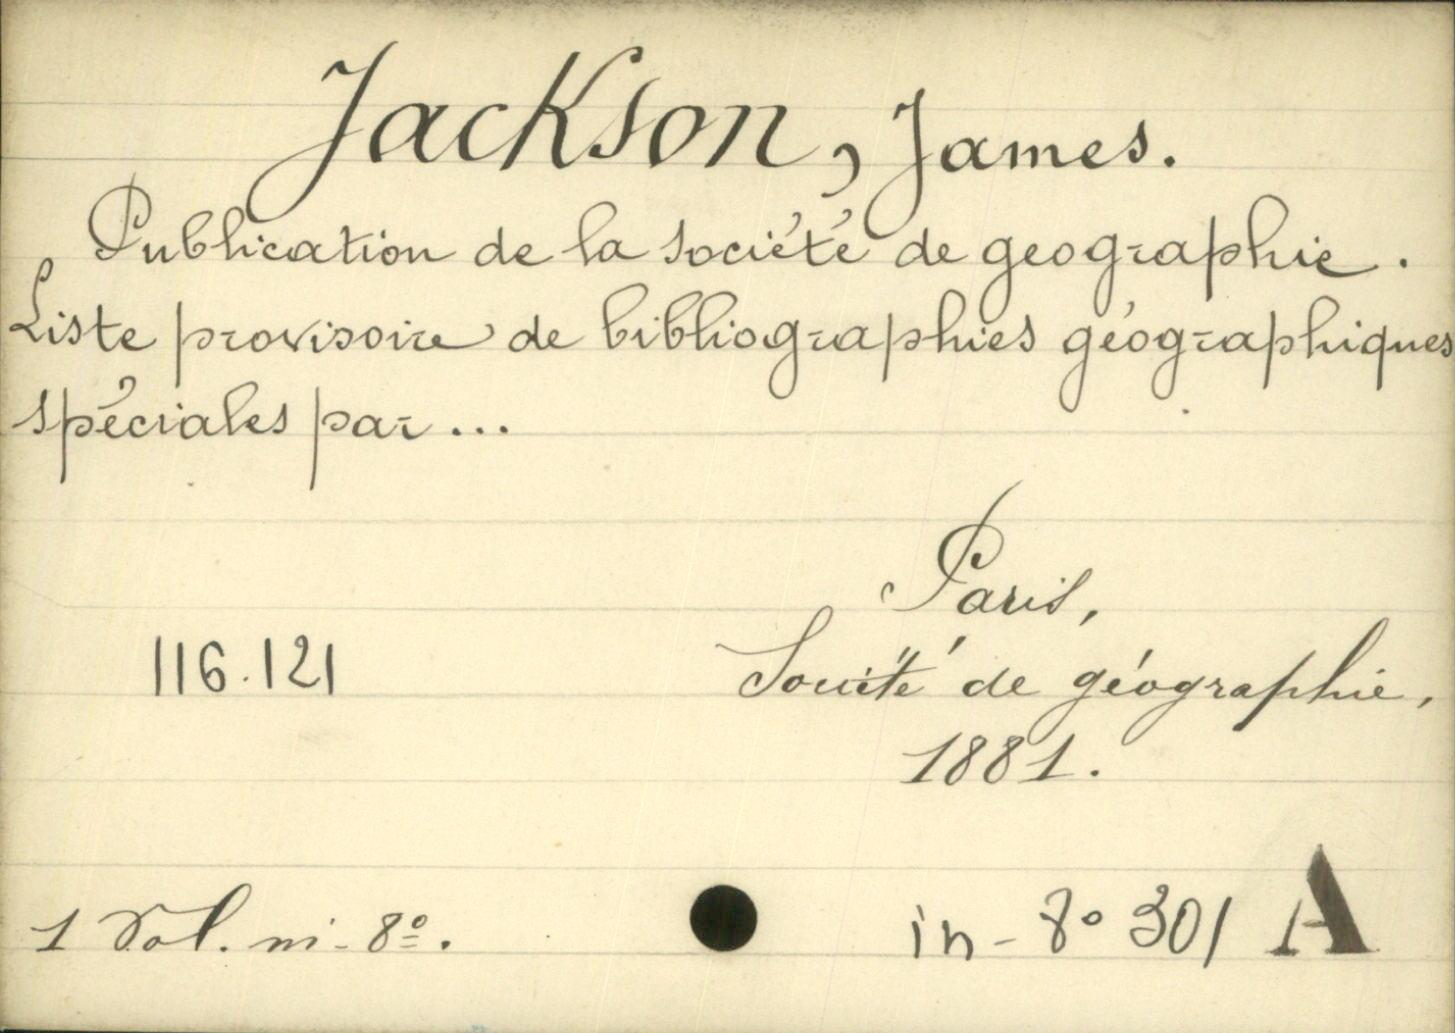 Jackson, James.
Publication de la société de geographie.
Liste provisoire de bibliographies géographiques
spéciales par ...
Paris,
116.121
Société de géographie,
1881.
1 Vol. in-8º.
in-8º 301 A